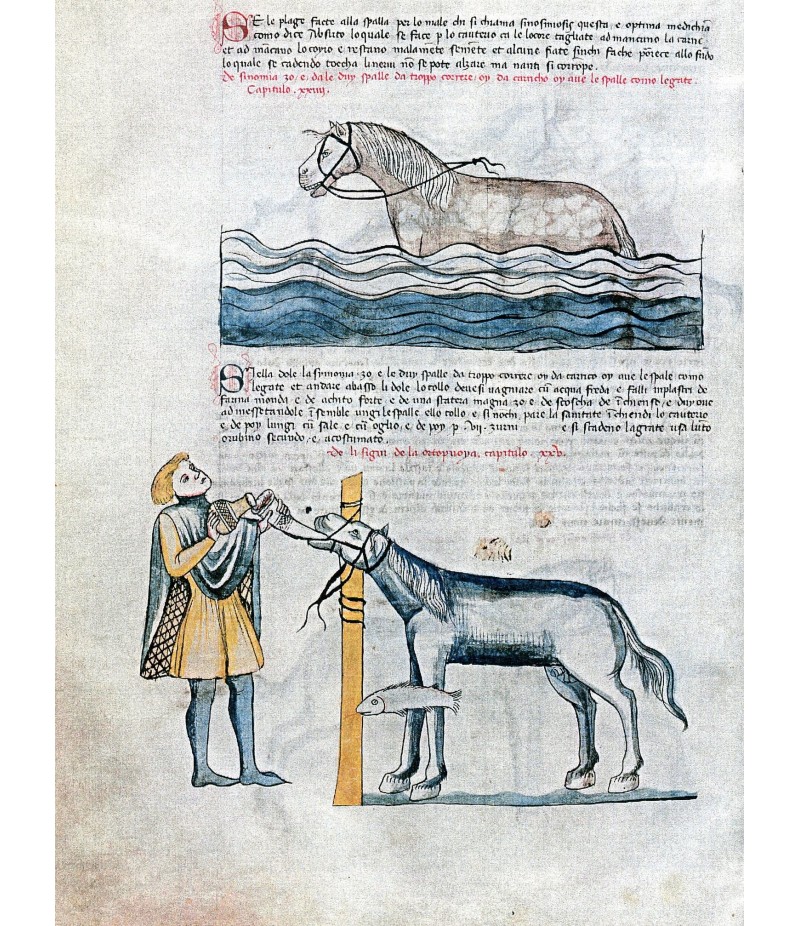 SE le plage facte alla spalla per lo male chi si chiama sinosmiosis questa e optima medichia
como dice Absirto lo quale se face p lo cauterio ca le locore tagliate ad mancano la carne
et ad macano lo corio e restano malamete semete et alcune fiate finchi fache poriece allo fudo
lo quale se cadendo toecha li nerui no se pote alzare ma nanti si corrope.
De sinomia 30 e dale duy spalle da troppo correre oy da caricho oy aue le spalle como legate.
Capitulo. xxiiij.
Sella dole la simonia 30 e le duy spalle da troppo correre oy da carico oy aue le spale como
legate et andare abasso li dole lo collo deuesi uagniare cu acqua freda e falli inplastri de
farina monda e de achito forte e de una statera magna 30 e de feoscha de ichense e duy oue
ad messetandole isemble ungi le spalle ello collo e si nochi pare la sanitate ichendi lo cauterio
e de poy lungi cu sale e cu oglio e de poy p vij iurni e si stadeno la grate usa luto
orubino secundo e acostumato.
de li signi de la ortopnoya. capitulo. xxv.